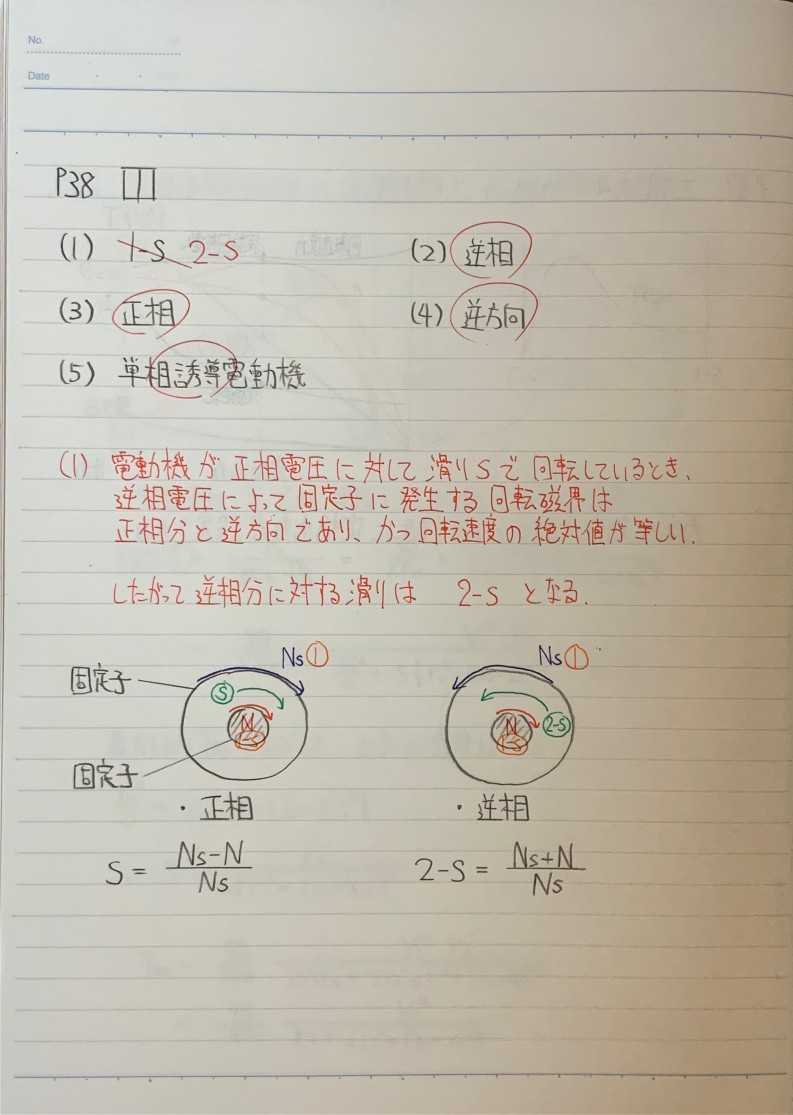 No.
Date
P38
(1) 1-S 2-S (2) 逆相
(3) 正相 (4) 逆方向
(5) 単相誘導電動機
(1) 電動機が正相電圧に対して滑りSで回転しているとき、
逆相電圧によって固定子に発生する回転磁界は
正相分と逆方向であり、かつ回転速度の絶対値が等しい.
したがって逆相分に対する滑りは 2-S となる.
Ns① Ns①
固定子 S N 1-S N 1-S 2-S
固定子
・正相 ・逆相
S = (Ns-N)/Ns 2-S = (Ns+N)/Ns